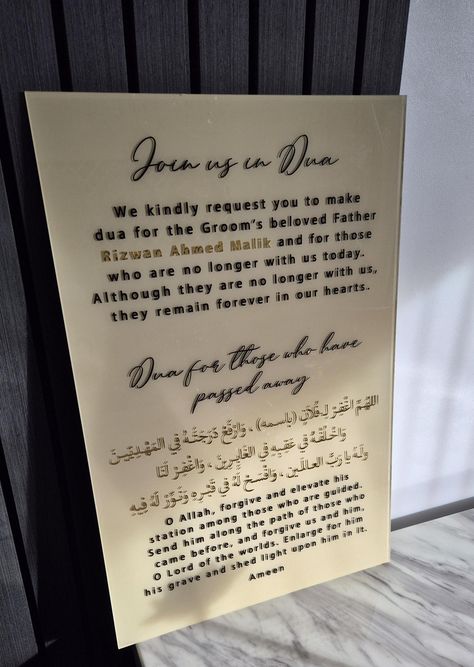 Join us in Dua
We kindly request you to make
dua for the Groom's beloved Father
Rizwan Ahmed Malik and for those
who are no longer with us today.
Although they are no longer with us,
they remain forever in our hearts.
Dua for those who have
passed away
اللَّهُمَّ اغْفِرْ لِفُلَانٍ (باسمه) ، وَارْفَعْ دَرَجَتَهُ فِي الْمَهْدِيِّينَ
وَاخْلُفْهُ فِي عَقِبِهِ فِي الْغَابِرِينَ ، وَاغْفِرْ لَنَا
وَلَهُ يَا رَبَّ الْعَالَمِينَ ، وَافْسَحْ لَهُ فِي قَبْرِهِ وَنَوِّرْ لَهُ فِيهِ
O Allah, forgive and elevate his
station among those who are guided.
Send him along the path of those who
came before, and forgive us and him.
O Lord of the worlds. Enlarge for him
his grave and shed light upon him in it.
Ameen